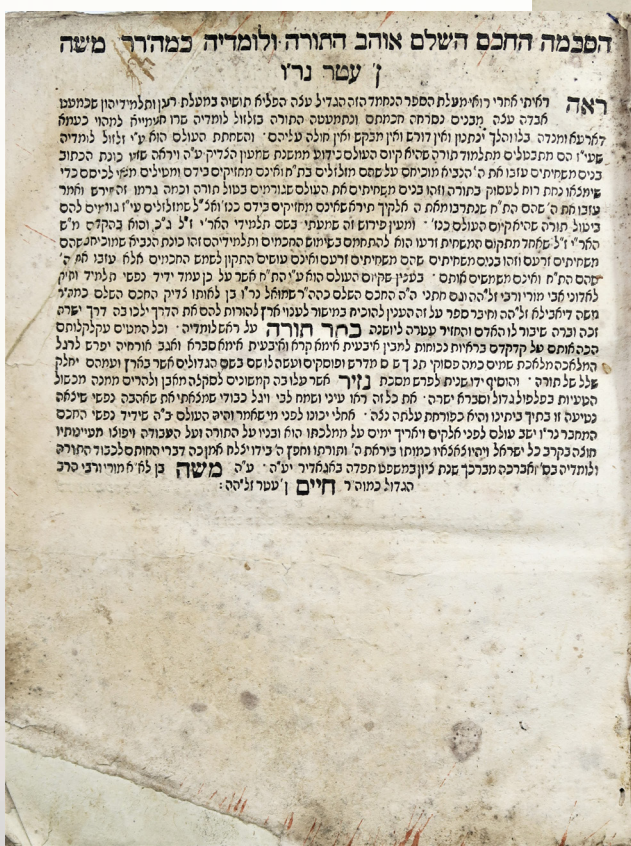 הסכמה החכם השלם אוהב התורה ולומדיה כמה״רר משה
ן׳ עטר נר״ו
ראה ראיתי אחרי רואי מעלת הספר הנחמד הזה הגדיל עצה הפליא תושיה במעלת רבנן ותלמידיהון שכמעט
אבדה עצה מבנים נסרחה חכמתם ונתמעטה התורה בזלזול לומדיה שרו חעמייא למהוי כעמא
דארעא ומנדה בלו והלך ונתנוון ואין דורש ואין מבקש ואין חולה עליהם · והשחתת העולם הוא ע״י זלזול לומדיה
שעי״ז הם מתבטלים מתלמוד תורה שהיא קיום העולם כידוע ממשנת שמעון הצדיק ע״ה ויראה שזו כונת הכתוב
בנים משחיתים עזבו את ה׳ הנביא מוכיחם על שהם מזלזלים בת״ח ואינם מחזיקים בידם ומטילים מצי לכיסם כדי
שימצאו נחת רוח לעסוק בתורה וזהו בנים משחיתים את העולם שגורמים בטול תורה וכמה גרמו זה פירש ואמר
עזבו את ה׳ שהם הת״ח שנתרבו מאת ה׳ אלקיך תירא שאינם מחזיקים בידם כנז׳ ואצ״ל שמזלזלים עי״ז גורמים להם
ביטול תורה שהיא קיום העולם כנז׳ · ומעין פירוש זה שמעתי בשם תלמידי האר״י ז״ל נ״כ, וסוא בהקדה מ״ש
האר״י ז״ל שאחד מתקום המשחית זרעו הוא להתחמם בשימוש החכמים ותלמידיהם וזהו כונת הנביא שמוכיחם שהם
משחיתים זרעם וזהו בנים משחיתים שהם משחיתים זרעם ואינם עושים התקון לשמש החכמים אלא עזבו את ה׳
שהם הת״ח ואינם משמשים אותם · בענין שקיום העולם הוא ע״י הת״ח אשר על כן עמד ידיד נפשי תלמיד ותיק
לאדוני אבי מורי ורבי זל״הה וגם חתני ה״ה החכם השלם כהה״ר שמואל נר״ו בן לאותו צדיק החכם השלם כמה״ר
משה דיאבילא זל״הה וחיבר ספר על זה הענין להוכיח במישור לענוי ארץ להורות להם את הדרך ילכו בה דרך ישרה
זכה וברה שיבור לו האדם והחזיר עטרה ליושנה כתר תורה על ראש לומדיה · וכל המטים עקלקלותם
הכה אותם על קדקדם בראיות נכוחות למבין איבעית אימא קרא ואיבעית אימא סברא ואגב אורחיה יפרש לרגל
המלאכה מלאכת שמים כמה פסוקי תנ ך ש ם מדרש ופוסקים ועשה לו שם בשם הגדולים אשר בארץ ועמהם יחלק
שלל של תורה · והוסיף ידו שנית לפרש מסכת נזיר אשר עלו בה קמשונים לסקלה מאבן ולהרים ממנה מכשול
הטעיות בפלפול גדול וסברא ישרה · את כל זה ראו עיני ושמח לבי ויגל כבודי שמצאתי את שאהבה נפשי שיצאה
נטיעה זו בתוך ביתינו והיא כפורחת עלתה נצה · אחלי יכונו לפני מי שאמר והיה העולם ב״ה שידיד נפשי החכם
המחבר נר״ו ישב עולם לפני אלקים ויאריך ימים על ממלכתו הוא ובניו על התורה ועל העבודה ויפוצו מעיינותיו
חוצה בקרב כל ישראל ויהיו צאצאיו כמותו ביראת ה׳ ותורתו וחפץ ה׳ בידו יצלח אמן כה דברי החותם לכבוד התורה
ולומדיה בס׳ ואברכה מברכך שנת ציון במשפט תפדה באגאדיר יע״ה · ע״ה משה בן לא״א מורי ורבי הרב
הגדול כמוה״ר חיים ן׳ עטר זל״הה :